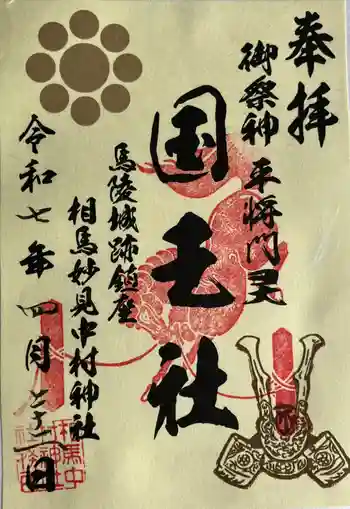 奉拝
御祭神 平将門
国王社
馬陵城跡鎮座
相馬妙見中村神社
令和七年四月
日